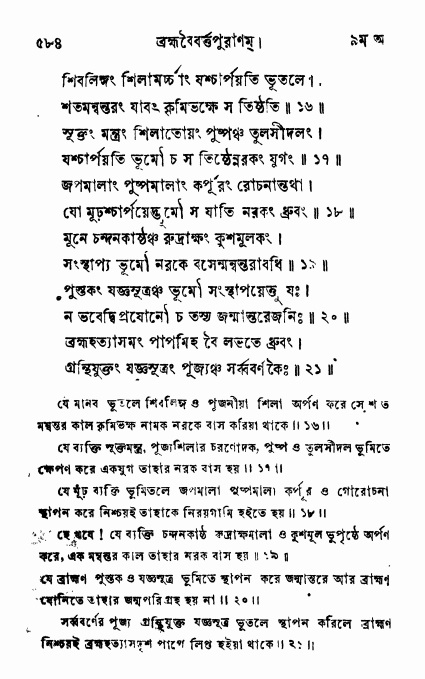 ৫৮৪ ব্রহ্মবৈবর্ত্তপুরাণম্। ৯ম অ
শিবলিঙ্গং শিলামর্চ্চাং যশ্চার্পয়তি ভূতলে।
শতমন্বন্তরং যাবৎ কৃমিভক্ষে স তিষ্ঠতি॥ ১৬॥
সূক্তং মন্ত্রং শিলাতোয়ং পুষ্পঞ্চ তুলসীদলং।
যশ্চার্পয়তি ভূমৌ চ স তিষ্ঠেন্নরকং যুগং॥ ১৭॥
জপমালাং পুষ্পমালাং কর্পূরং রোচনান্তথা।
যো মূঢ়শ্চার্পয়েদ্ভূমৌ স যাতি নরকং ধ্রুবং॥ ১৮॥
মুনে চন্দনকাষ্ঠঞ্চ রুদ্রাক্ষং কুশমূলকং।
সংস্থাপ্য ভূমৌ নরকে বসেন্মন্বন্তরাবধি॥ ১৯॥
পুস্তকং যজ্ঞসূত্রঞ্চ ভূমৌ সংস্থাপয়েত্তু যঃ।
ন ভবেদ্বিপ্রযোনৌ চ তস্য জন্মান্তরেজনিঃ॥ ২০॥
ব্রহ্মহত্যাসমং পাপমিহ বৈ লভতে ধ্রুবং।
গ্রন্থিযুক্তং যজ্ঞসূত্রং পূজ্যঞ্চ সর্ব্ববর্ণকৈঃ॥ ২১॥
যে মানব ভূতলে শিবলিঙ্গ ও পূজনীয়া শিলা অর্পণ করে সে শত
মন্বন্তর কাল কৃমিভক্ষ নামক নরকে বাস করিয়া থাকে॥ ১৬॥
যে ব্যক্তি সূক্তমন্ত্র, পূজ্যশিলার চরণোদক, পুষ্প ও তুলসীদল ভূমিতে
ক্ষেপণ করে একযুগ তাহার নরক বাস হয়॥ ১৭॥
যে মূঢ় ব্যক্তি ভূমিতলে জপমালা পুষ্পমালা কর্পূর ও গোরোচনা
স্থাপন করে নিশ্চয়ই তাহাকে নিরয়গামি হইতে হয়॥ ১৮॥
হে ঋষে! যে ব্যক্তি চন্দনকাষ্ঠ রুদ্রাক্ষমালা ও কুশমূল ভূপৃষ্ঠে অর্পণ
করে, এক মন্বন্তর কাল তাহার নরক বাস হয়॥ ১৯॥
যে ব্রাহ্মণ পুস্তক ও যজ্ঞসূত্র ভূমিতে স্থাপন করে জন্মান্তরে আর ব্রাহ্মণ
যোনিতে তাহার জন্মপরিগ্রহ হয় না॥ ২০॥
সর্ব্ববর্ণের পূজ্য গ্রন্থিযুক্ত যজ্ঞসূত্র ভূতলে স্থাপন করিলে ব্রাহ্মণ
নিশ্চয়ই ব্রহ্মহত্যাসদৃশ পাপে লিপ্ত হইয়া থাকে॥ ২১॥